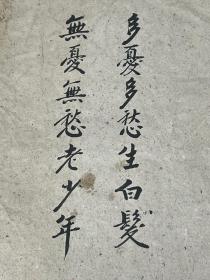 多憂多愁生白髮
無憂無愁老少年